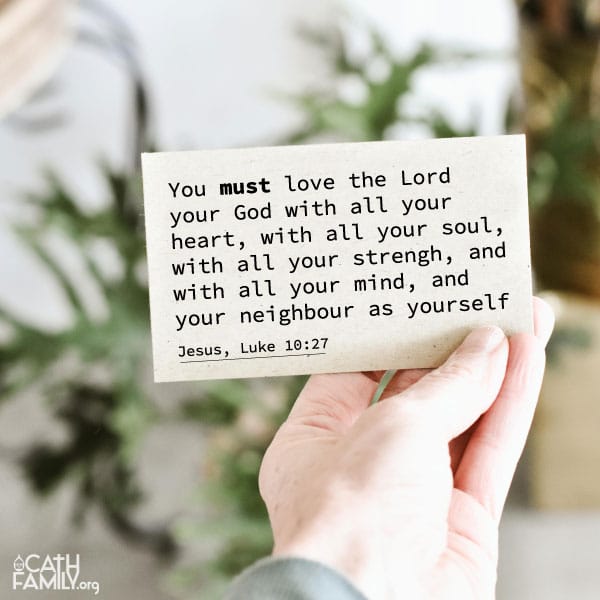 You must love the Lord
your God with all your
heart, with all your soul,
with all your strengh, and
with all your mind, and
your neighbour as yourself
Jesus, Luke 10:27
CATH
FAMILY.org